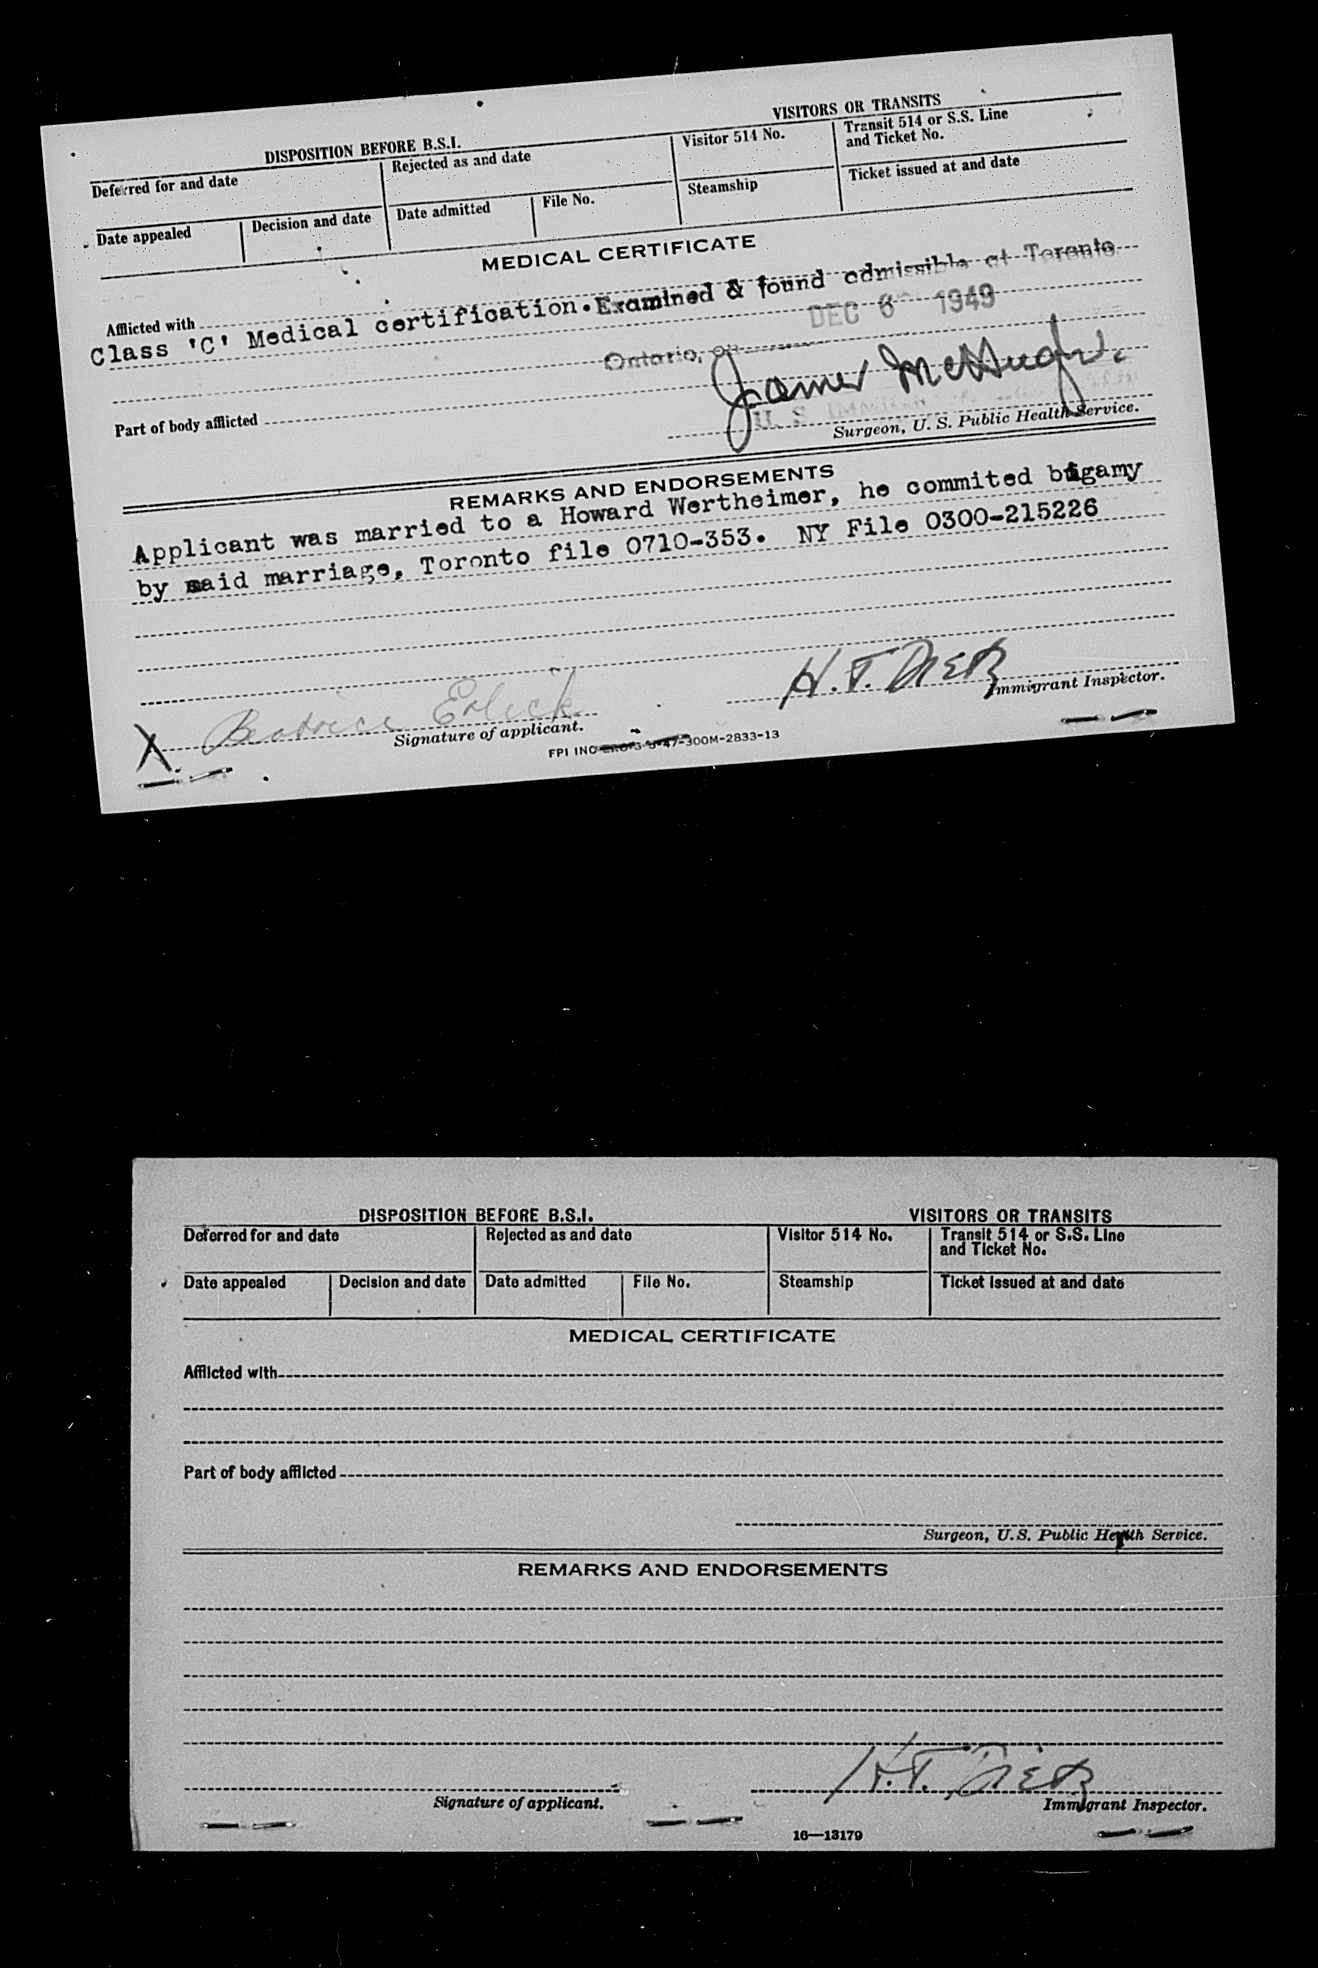 DISPOSITION BEFORE B.S.I.
VISITORS OR TRANSITS
Deferred for and date
Rejected as and date
Visitor 514 No.
Transit 514 or S.S. Line
and Ticket No.
Date appealed
Decision and date
Date admitted
File No.
Steamship
Ticket issued at and date
MEDICAL CERTIFICATE
Afflicted with
Class 'C' Medical certification. Examined & found admissible at Toronto
Ontario, on DEC 6 1949
James McHugh
U. S.
Part of body afflicted
Surgeon, U. S. Public Health Service.
REMARKS AND ENDORSEMENTS
Applicant was married to a Howard Wertheimer, he commited bigamy
by said marriage, Toronto file 0710-353. NY File 0300-215226
H.T. Dietz
Immigrant Inspector.
X. Beatrice Erlick
Signature of applicant.
FPI INC 47-300M-2833-13
DISPOSITION BEFORE B.S.I.
VISITORS OR TRANSITS
Deferred for and date
Rejected as and date
Visitor 514 No.
Transit 514 or S.S. Line
and Ticket No.
Date appealed
Decision and date
Date admitted
File No.
Steamship
Ticket issued at and date
MEDICAL CERTIFICATE
Afflicted with
Part of body afflicted
Surgeon, U.S. Public Health Service.
REMARKS AND ENDORSEMENTS
H.T. Dietz
Signature of applicant.
Immigrant Inspector.
16—13179